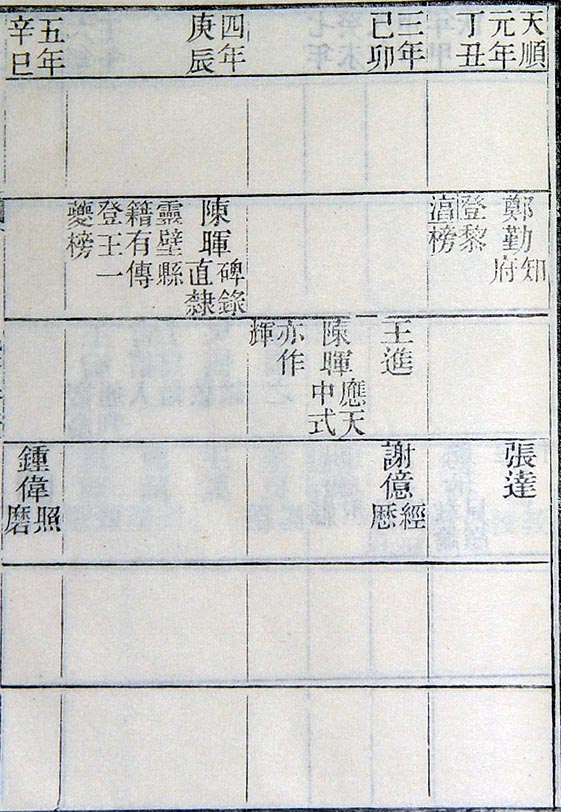 天順
元年
丁丑
三年
己卯
四年
庚辰
五年
辛巳
鄭勤知府
登黎
湻榜
陳暉碑錄直隸
靈壁縣
籍有傳
登王一
夔榜
王進
陳暉應天中式
亦作
輝
張達
謝億經歷
鍾偉照磨